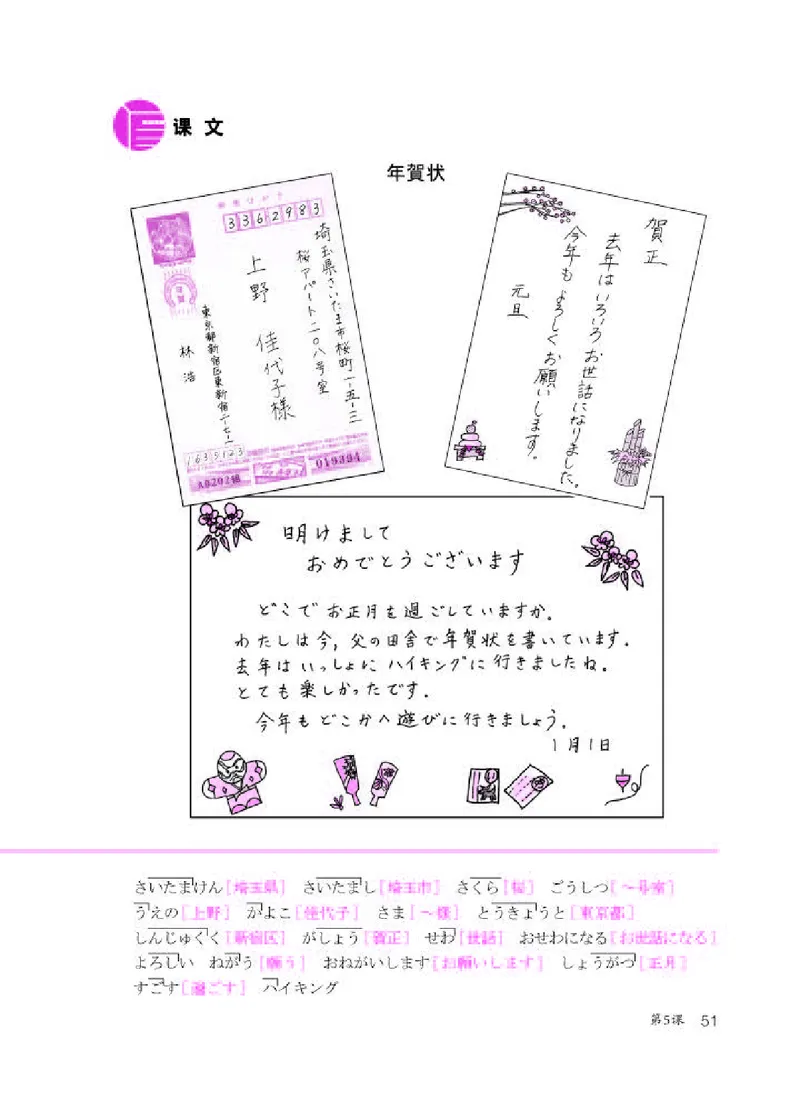 课文
年賀状
郵便はがき
3362983
埼玉県さいたま市桜町一-五-三
桜アパート二〇八号室
上野 佳代子様
東京都新宿区東新宿
林 浩
1639123
A0202組
019394
賀正
去年はいろいろお世話になりました。
今年もよろしくお願いします。
元旦
明けまして
おめでとうございます
どこでお正月を過ごしていますか。
わたしは今,父の田舎で年賀状を書いています.
去年はいっしょにハイキングに行きましたね。
とても楽しかったです.
今年もどこかへ遊びに行きましょう.
1月1日
さいたまけん[埼玉県] さいたまし[埼玉市] さくら[桜] ごうしつ[～号室]
うえの[上野] かよこ[佳代子] さま[～様] とうきょうと[東京都]
しんじゅくく[新宿区] がしょう[賀正] せわ[世話] おせわになる[お世話になる]
よろしい ねがう[願う] おねがいします[お願いします] しょうがつ[正月]
すごす[過ごす] ハイキング
第5课 51